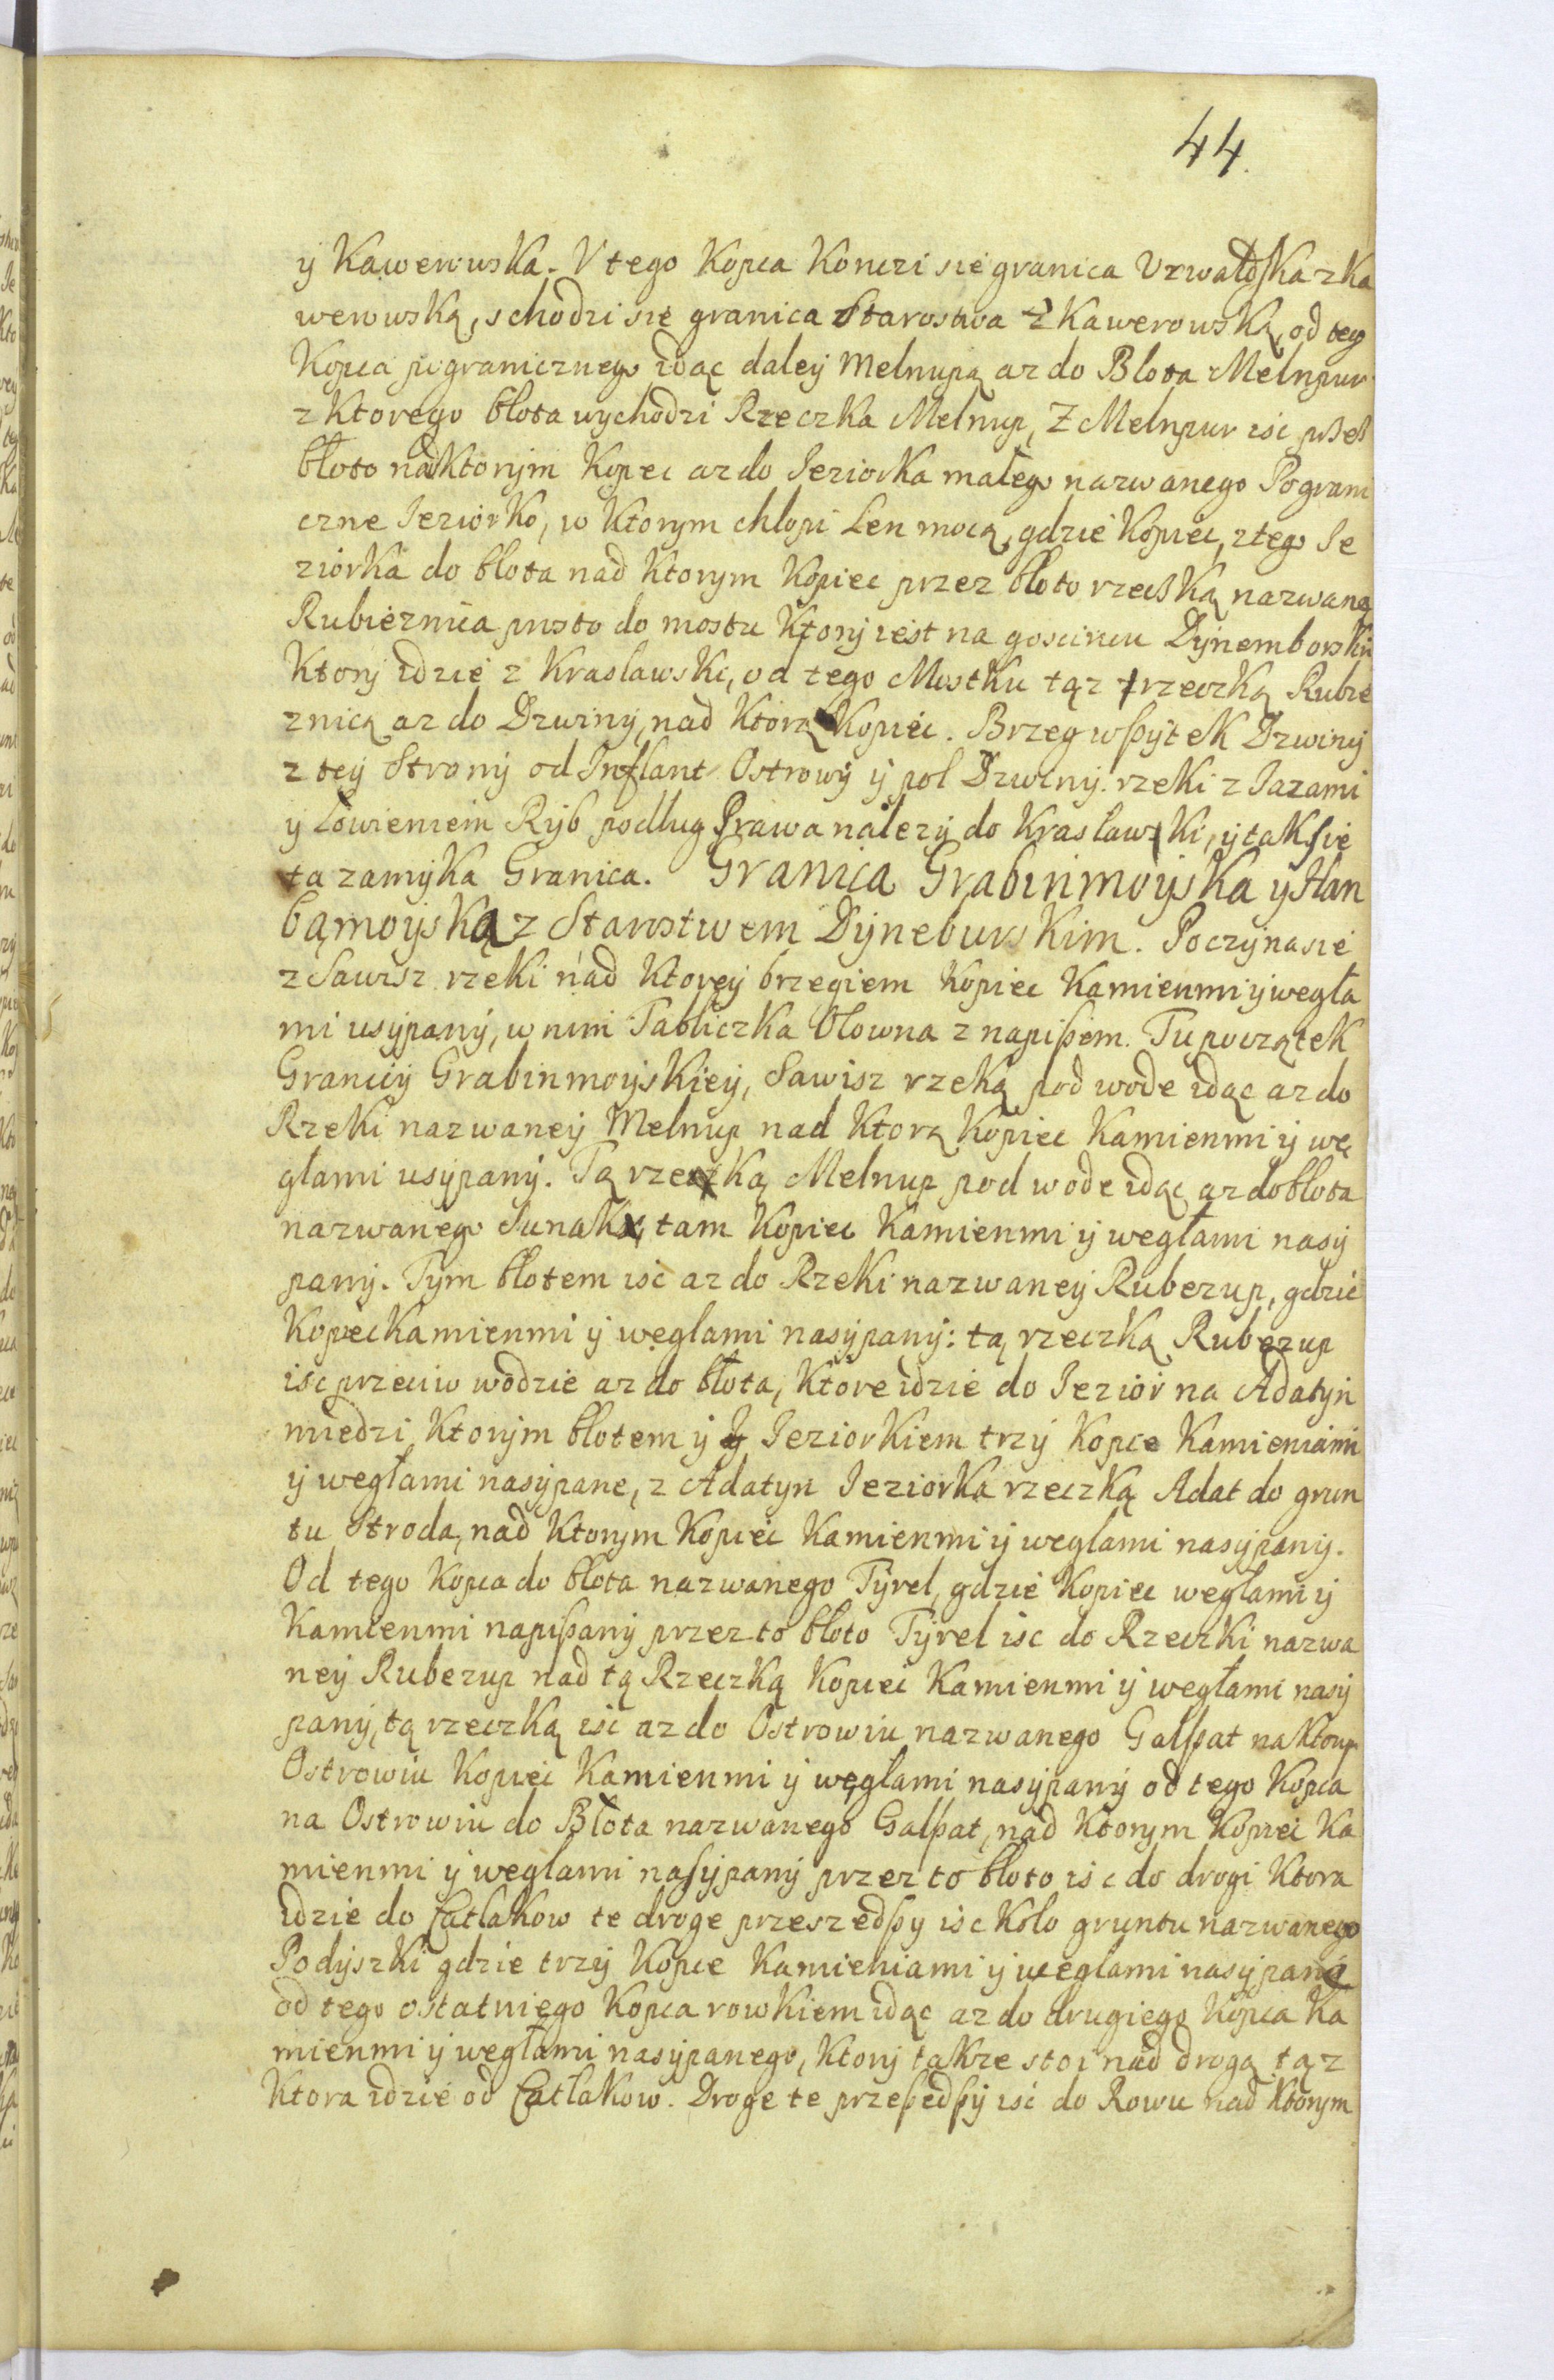 44.
y Kawerowska. V tego Kopca Konczi się granica Vzwałdska z Ka
werowską, schodzi się granica Starostwa z Kawerowską, od tego
Kopca pogranicznego idąc daley Melnupą az do Błota Melnpur
z Ktorego błota wychodzi Rzeczka Melnup, Z Melnpur isc przez
błoto nad Ktorym Kopiec az do Ieziorka małego nazwanego Pograni
czne Ieziorko, w Ktorym chłopi Len moczą, gdzie Kopiec, z tego Ie
ziorka do błota nad Ktorym Kopiec przez błoto rzeczką nazwaną
Rubieznica prosto do mostu Ktory iest na goscincu Dynemborskim
Ktory idzie z Krasławski, od tego Mostku tąz rzeczką Rubie
znicą az do Dzwiny, nad Ktorą Kopiec. Brzeg wszytek Dzwiny
z tey Strony od Inflant Ostrowy y poł Dzwiny rzeki z Iazami
y Łowieniem Ryb podług Prawa należy do Krasławki, y tak się
ta zamyka Granica. Granica Grabinmoyska y Han
bąmoyską z Starostwem Dyneburskim. Poczyna się
z Sawisz rzeki nad Ktorey brzegiem Kopiec Kamienmi y węgła
mi usypany, w nim Tabliczka Ołowna z napisem. Tu początek
Granicy Grabinmoyskiey, Sawisz rzeką pod wodę idąc az do
Rzeki nazwaney Melnup nad Ktorą Kopiec Kamienmi y wę
głami usypany. Tą rzeczką Melnup pod wodę idąc az do błota
nazwanego Sunak, tam Kopiec Kamienmi y węgłami nasy
pany. Tym błotem isc az do Rzeki nazwaney Ruberup, gdzie
Kopiec Kamienmi y węglami nasypany: tą rzeczką Ruberup
isc przeciw wodzie az do błota, Ktore idzie do Iezior na Adatyn
miedzi Ktorym błotem y Ieziorkiem trzy Kopce Kamieniami
y węgłami nasypane, z Adatyn Ieziorka rzeczką Adat do grun
tu Stroda, nad Ktorym Kopiec Kamienmi y węglami nasypany.
Od tego Kopca do błota nazwanego Tyrel, gdzie Kopiec węglami y
Kamienmi napisany przez to błoto Tyrel isc do Rzeczki nazwa
ney Ruberup nad tą Rzeczką Kopiec Kamienmi y węgłami nasy
pany, tą rzeczką isc az do Ostrowiu nazwanego Galszat na Ktorym
Ostrowiu Kopiec Kamienmi y węgłami nasypany od tego Kopca
na Ostrowiu do Błota nazwanego Galszat, nad Ktorym Kopiec Ka
mienmi y węglami nasypany przez to błoto isc do drogi Ktora
idzie do Catlakow te drogę przeszedszy isc Koło gruntu nazwanego
Podyszki gdzie trzy Kopce Kamieniami y węglami nasypane
od tego ostatniego Kopca rowkiem idąc az do drugiego Kopca Ka
mienmi y węgłami nasypanego, Ktory takze stoi nad drogą tąz
Ktora idzie od Catlakow. Drogę te przeszedszy isc do Rowu nad Ktorym